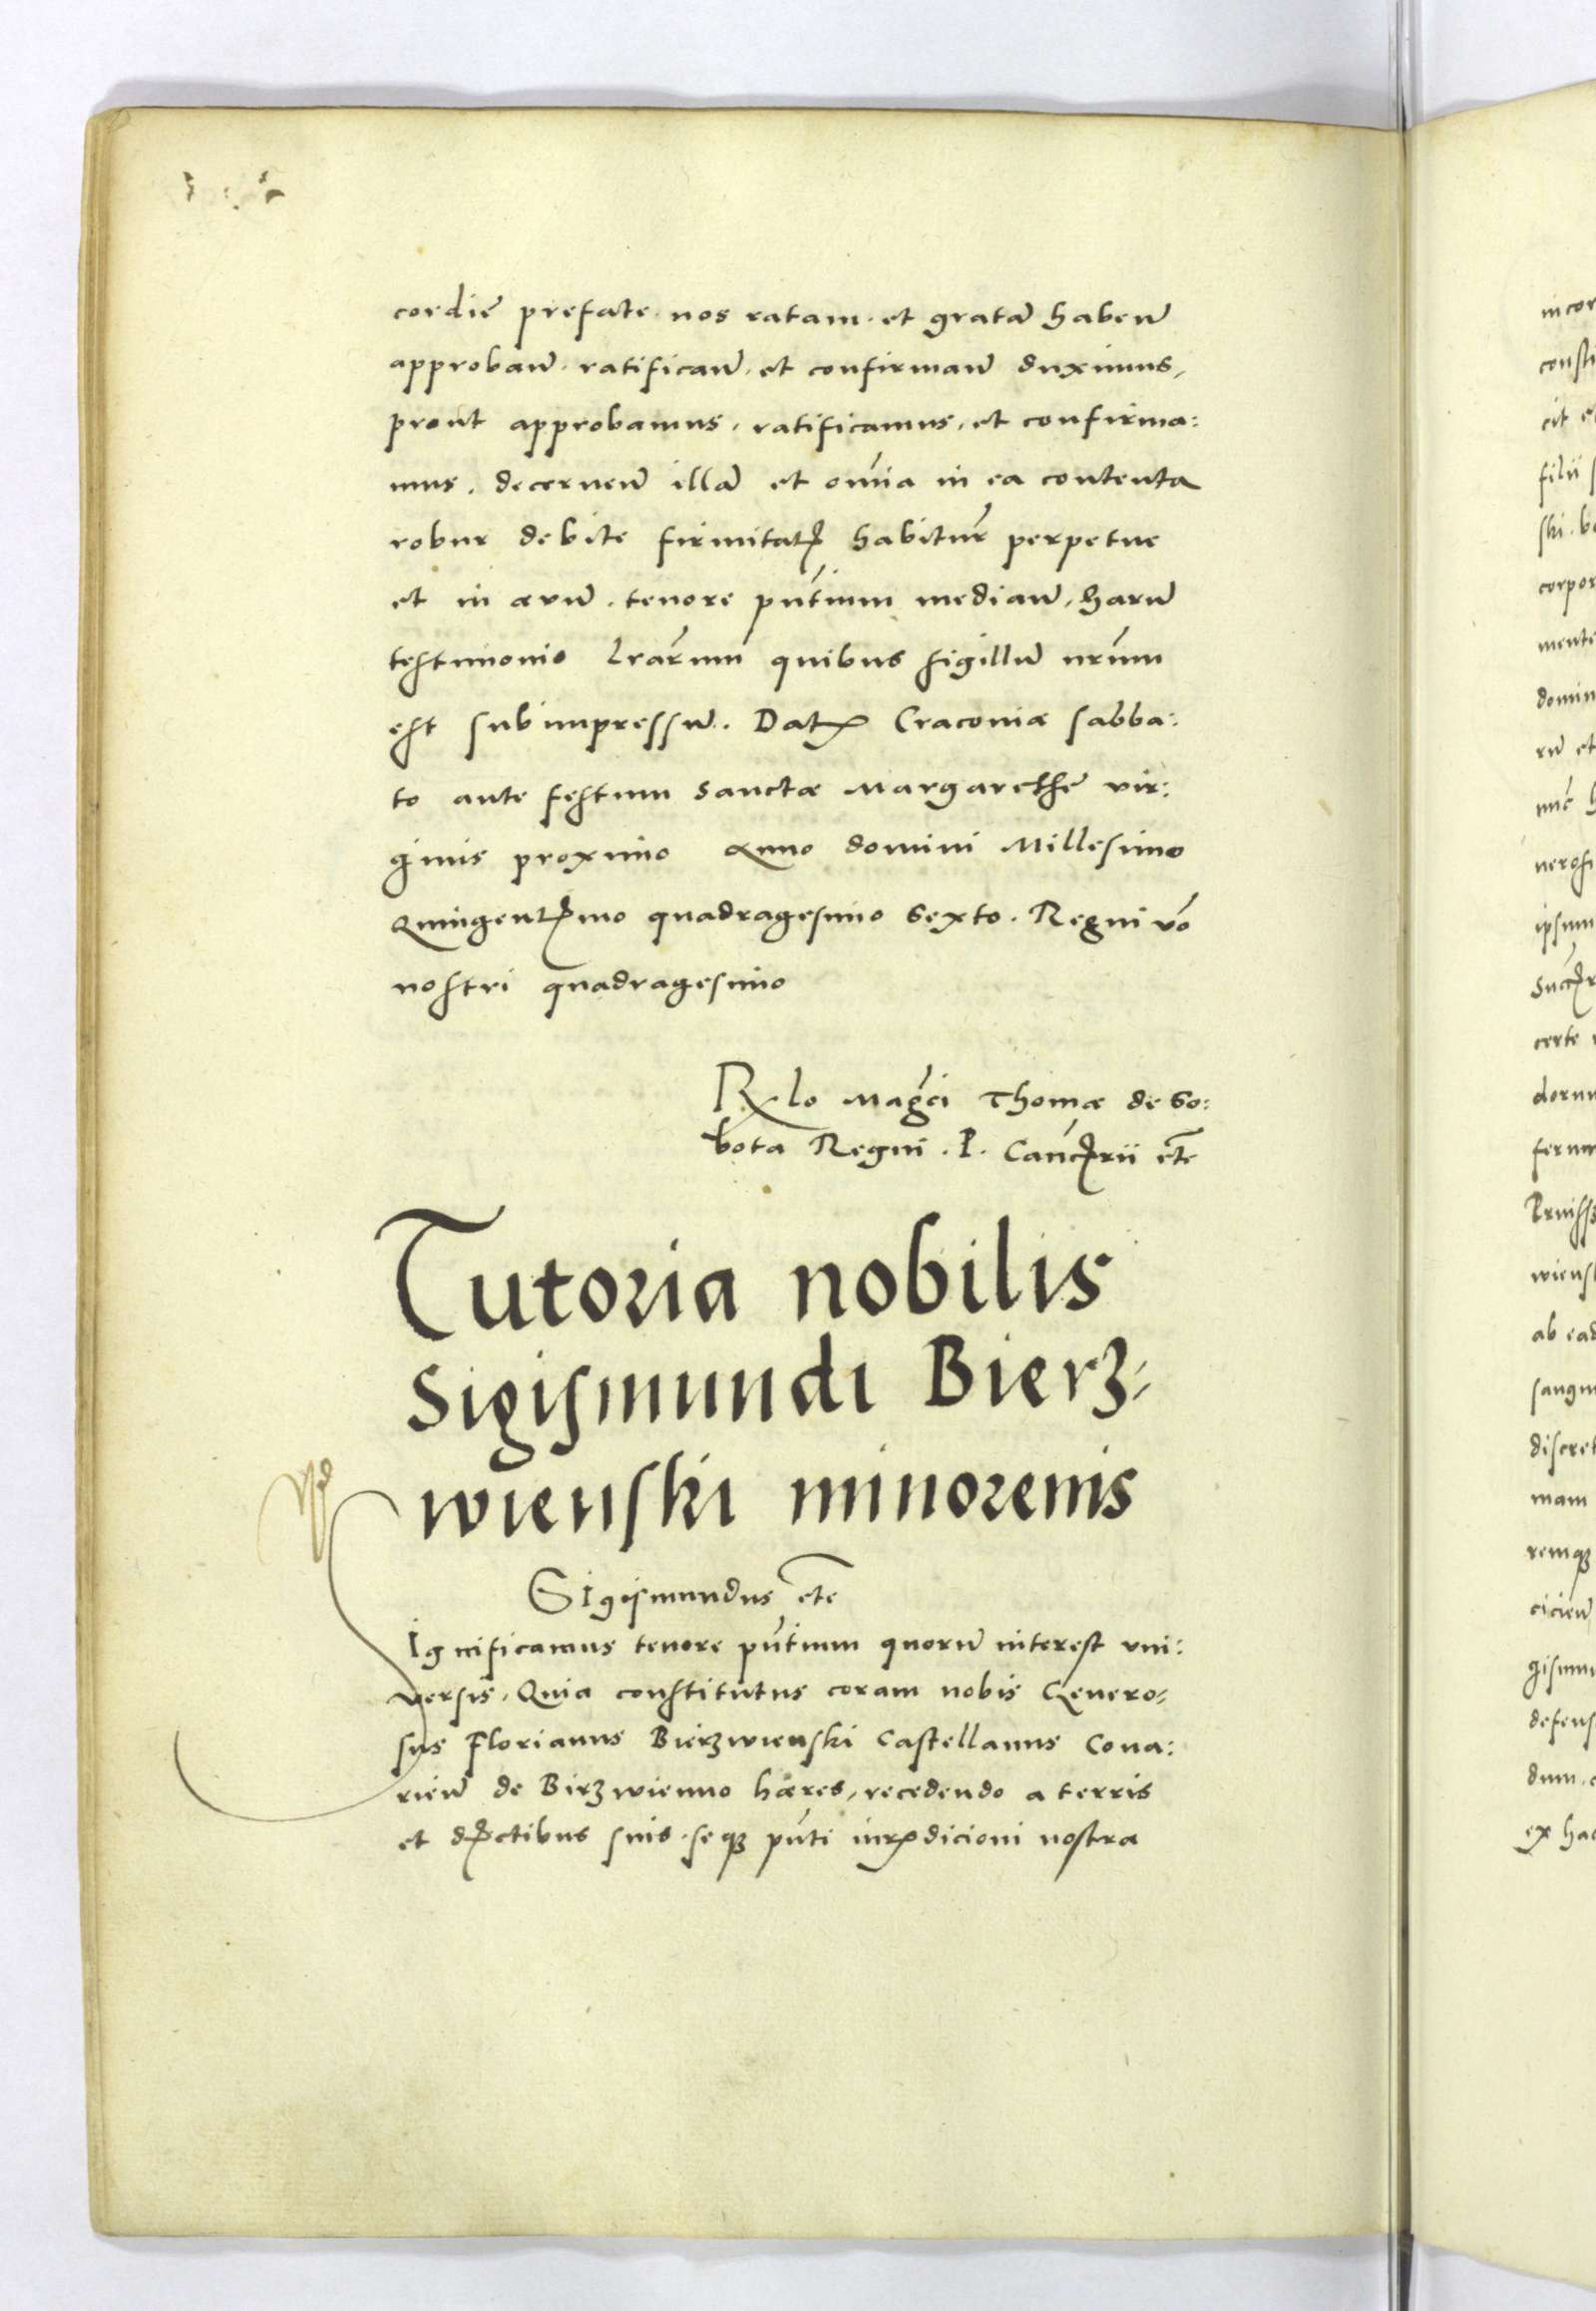 cordiẽ prefate nos ratam et gratã habeñ
approbañ ratificañ et confirmañ duximus,
prout approbamus, ratificamus, et confirma:
mus. decerneñ illã et om̃ia in ea contenta
robur debite firmitatꝭ habitur̃ perpetue
et in ævũ. tenore pñtium mediañ, harũ
testimonio lrãrum quibus sigillũ nrũm
est subimpressũ. Datꝭ Cracoviæ sabba:
to ante festum sanctæ Margarethẽ vir:
ginis proximo anno domini Millesimo
Quingentꝭmo quadragesimo sexto. Regni ṽo
nostri quadragesimo
Rlo Mag̃ci Thomæ de So:
bota Regni. P. Canc̃ꝭrii etc̃
Tutoria nobilis
Sigismundi Bierz-
wienski minorenis
Sigismundus etc̃
Significamus tenore pñtium quorũ interest uni:
versis, Quia constitutus coram nobis Genero-
sus Florianus Bierzwienski Castellanus Cona:
rieñ de Birzwienno hæres, recedendo a terris
et dꝭctibus suis, seqꝫ pñti iurꝭdicioni nostra
incor
consti
cit et
corpor
mente
domin
rũ et
ipsum
certe
dorum
wiensk
ab ead
sangui
discret
mam
remqꝫ
gismu
defens
dum
ex hac